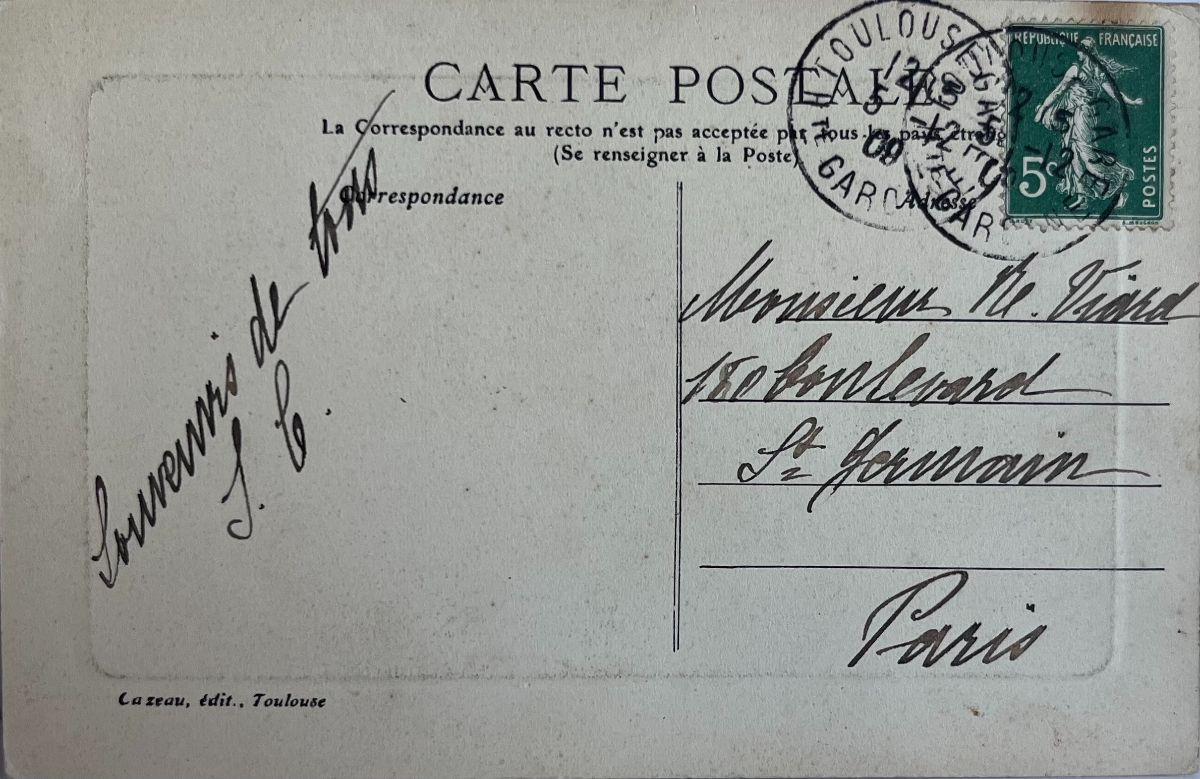 CARTE POSTALE
La Correspondance au recto n'est pas acceptée par tous les pays étrang
(Se renseigner à la Poste)
Correspondance
Adresse
RÉPUBLIQUE FRANÇAISE
5c
POSTES
TOULOUSE
12
5
09
Hte GARONNE
Souvenirs de tous
S. C.
Monsieur Re. Viard
180 boulevard
St Germain
Paris
Cazeau, édit., Toulouse